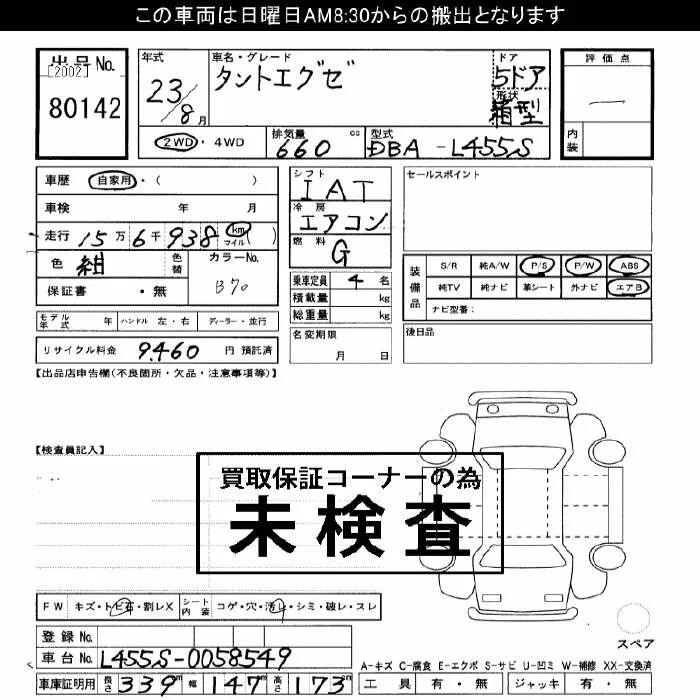 この車両は日曜日AM8:30からの搬出となります
出品No.
[2002]
80142
年式
23/8月
車名・グレード
タントエグゼ
ドア
5ドア
形状
箱型
評価点
内装
2WD・4WD
排気量
660 cc
型式
DBA-L455S
車歴 自家用・( )
車検 年 月
走行 15万6千938 km マイル ( )
色 紺 色替 カラーNo. B70
保証書 ・無
シフト
IAT
冷房
エアコン
燃料
G
乗車定員 4 名
積載量 kg
総重量 kg
名変期限
月 日
セールスポイント
装備品
S/R 純A/W P/S P/W ABS
純TV 純ナビ 革シート 外ナビ エアB
ナビ型番:
後日品
モデル年式 年 ハンドル 左・右 ディーラー・並行
リサイクル料金 9,460 円 預託済
【出品店申告欄(不良箇所・欠品・注意事項等)】
【検査員記入】
買取保証コーナーの為
未検査
FW キズ・トビ石・割レX シート内装 コゲ・穴・汚レ・シミ・破レ・スレ
スペア
登録No.
車台No. L455S-0058549
A-キズ C-腐食 E-エクボ S-サビ U-凹ミ W-補修 XX-交換済
車庫証明用 長さ 339m 幅 147m 高さ 173cm
工具 有・無 ジャッキ 有・無